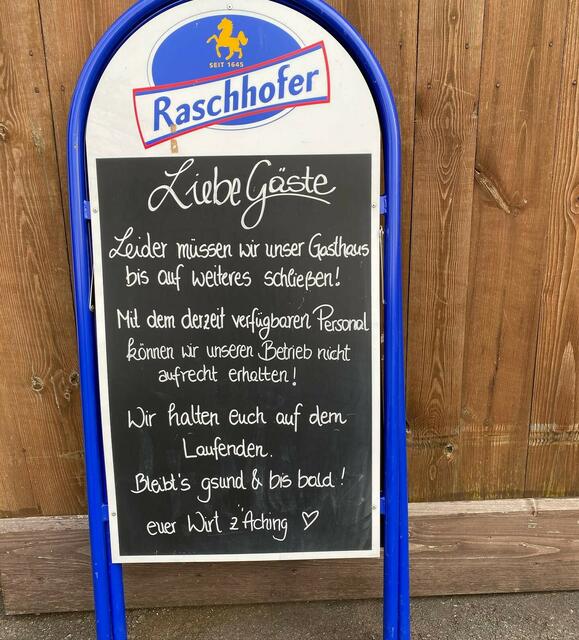 SEIT 1645
Raschhofer
Liebe Gäste
Leider müssen wir unser Gasthaus
bis auf weiteres schließen!
Mit dem derzeit verfügbaren Personal
können wir unseren Betrieb nicht
aufrecht erhalten!
Wir halten euch auf dem
Laufenden.
Bleibt's gsund & bis bald!
euer Wirt z'Aching ♡